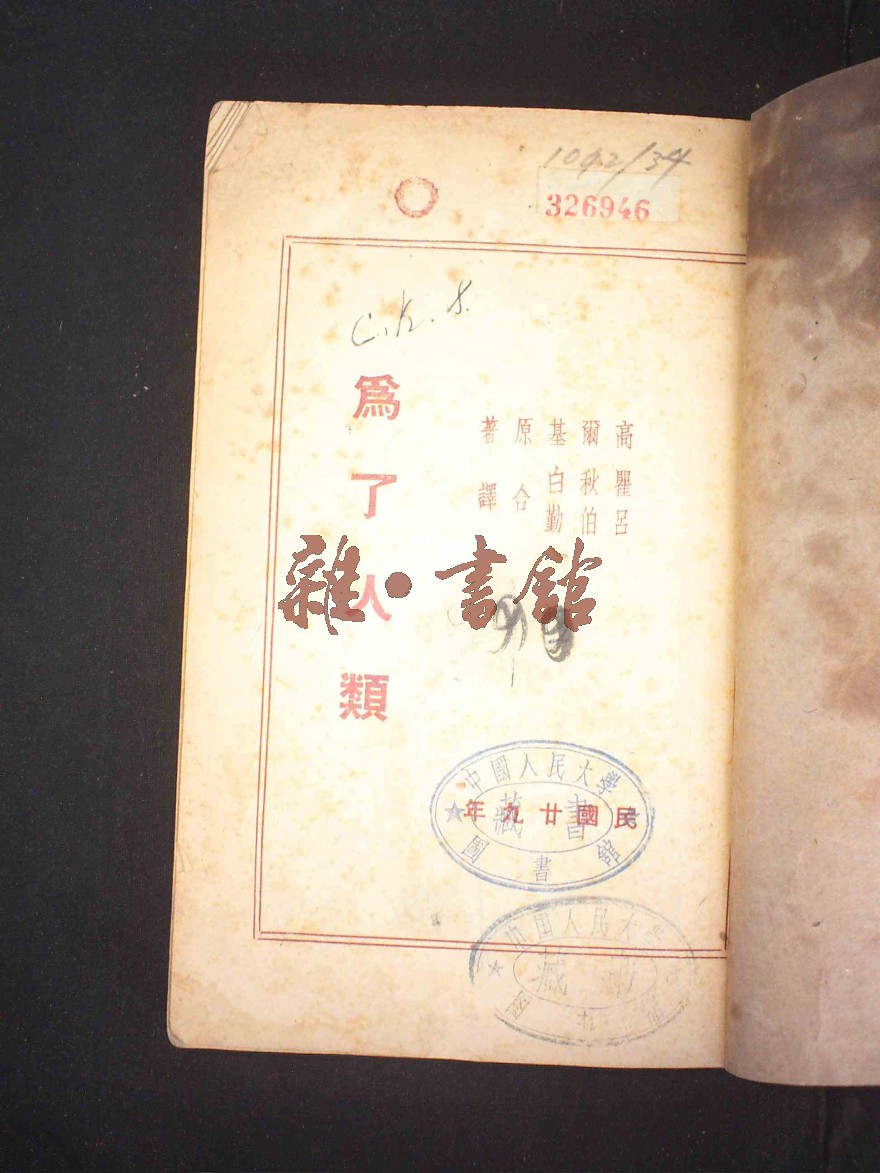 1092/34
326946
C.K.S.
高爾基原著
瞿秋白
呂伯勤
合譯
爲了人類
雜·書館
民國廿九年
中國人民大學
藏書
圖書館
中国人民大
藏